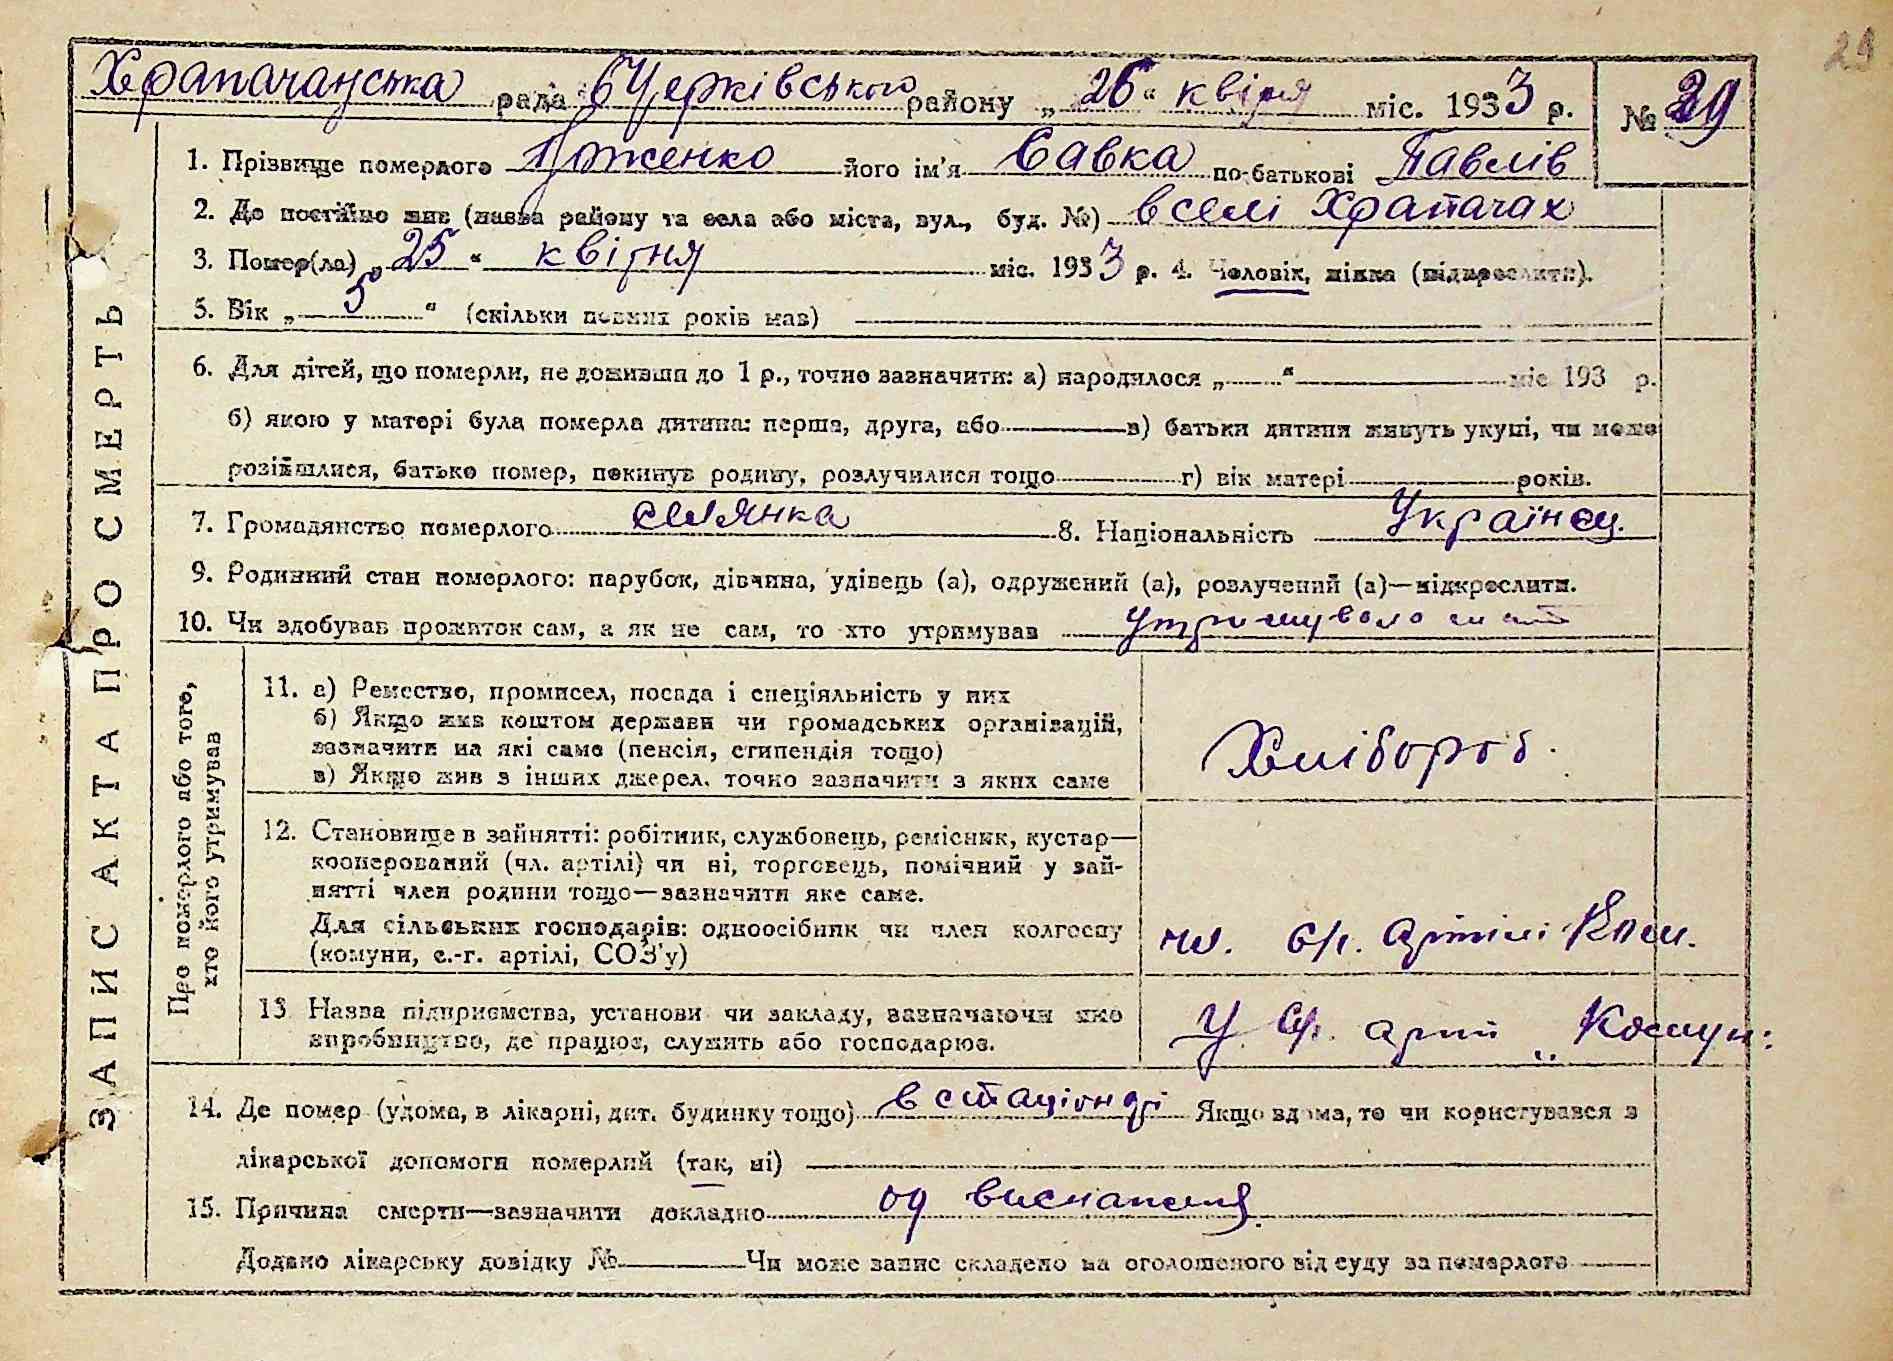 29
Храпачанська рада БЦерківського району „26“ квітня міс. 1933 р. № 29
1. Прізвище померлого його ім'я Савка по-батькові Павлів
2. Де постійно жив (назва району та села або міста, вул., буд. №) в селі Храпачах
3. Помер(ла) „25“ квітня міс. 1933 р. 4. Чоловік, жінка (підкреслити).
5. Вік „5“ (скільки повних років мав)
6. Для дітей, що померли, не доживши до 1 р., точно зазначити: а) народилося „ “ міс 193 р.
б) якою у матері була померла дитина: перша, друга, або в) батьки дитини живуть укупі, чи може
розійшлися, батько помер, покинув родину, розлучилися тощо г) вік матері років.
7. Громадянство померлого селянка 8. Національність Українец.
9. Родинний стан померлого: парубок, дівчина, удівець (а), одружений (а), розлучений (а)—підкреслити.
10. Чи здобував прожиток сам, а як не сам, то хто утримував утримувала мать
ЗАПИС АКТА ПРО СМЕРТЬ
Про померлого або того,
хто його утримував
11. а) Ремество, промисел, посада і спеціяльність у них
б) Якщо жив коштом держави чи громадських організацій,
зазначити на які саме (пенсія, стипендія тощо)
в) Якщо жив з інших джерел, точно зазначити з яких саме
Хлібороб.
12. Становище в зайнятті: робітник, службовець, ремісник, кустар—
кооперований (чл. артілі) чи ні, торговець, помічний у зай-
нятті член родини тощо—зазначити яке саме.
Для сільських господарів: одноосібник чи член колгоспу
(комуни, с.-г. артілі, СОЗ'у)
чл. с/г. артілі
13 Назва підприємства, установи чи закладу, зазначаючи яке
виробництво, де працює, служить або господарює.
У с/г. арті „Комун:
14. Де помер (удома, в лікарні, дит. будинку тощо) в стаціонарі Якщо вдома, то чи користувався з
лікарської допомоги померлий (так, ні)
15. Причина смерти—зазначити докладно од виснаження.
Додано лікарську довідку № Чи може запис складено на оголошеного від суду за померлого